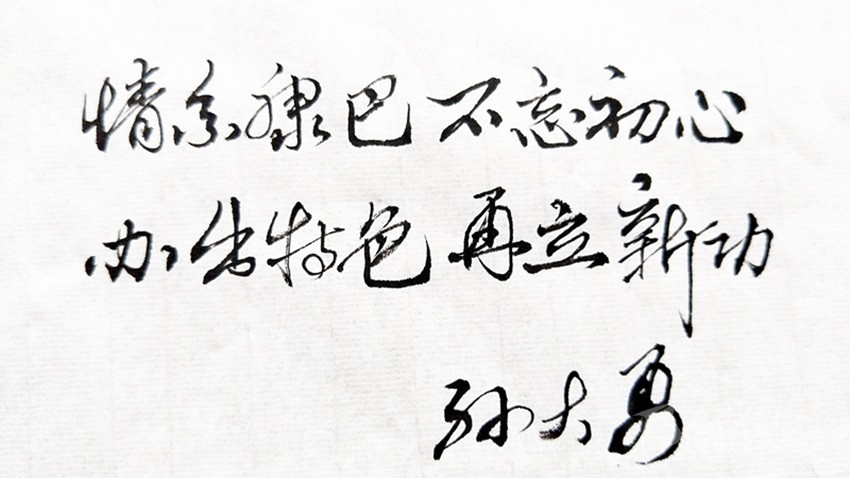 情系康巴 不忘初心
办出特色 再立新功
孙大勇